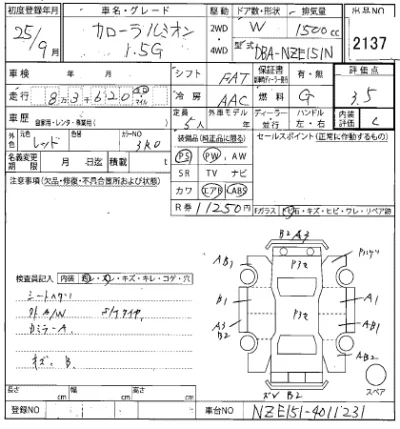 初度登録年月 車名・グレード 駆動 ドア数・形状 排気量 出品NO
25/9月 カローラルミオン 1.5G 2WD・4WD W 1500cc 2137
型式 DBA-NZE151N
車検 年 月 シフト FAT 保証書 有・無 評価点
走行 83620 km マイル 冷房 AAC 燃料 G 3.5
車歴 自家用・レンタ・商業用( ) 定員 5人 外車モデル 年 ディーラー・並行 ハンドル 左・右 内装評価 C
外色 元色 レッド カラーNO 3R0 装備品(純正品に限る) セールスポイント(正常に作動するもの)
名義変更期限 月 日迄 積載 t PS PW AW
SR TV ナビ
注意事項(欠品・修復・不具合箇所および状態) カワ エアB ABS
R券 11250円
Fガラス 飛石・キズ・ヒビ・ワレ・リペア跡
B2 A3
Pスミ
AB1
検査員記入 内装 キズ・キレ・コゲ・穴
B1 Pスミ A1
A3 B2 AB1
AB2
キズ、B
スペア
B2
長さ cm 幅 cm 高さ cm
登録NO 車台NO NZE151-4011231